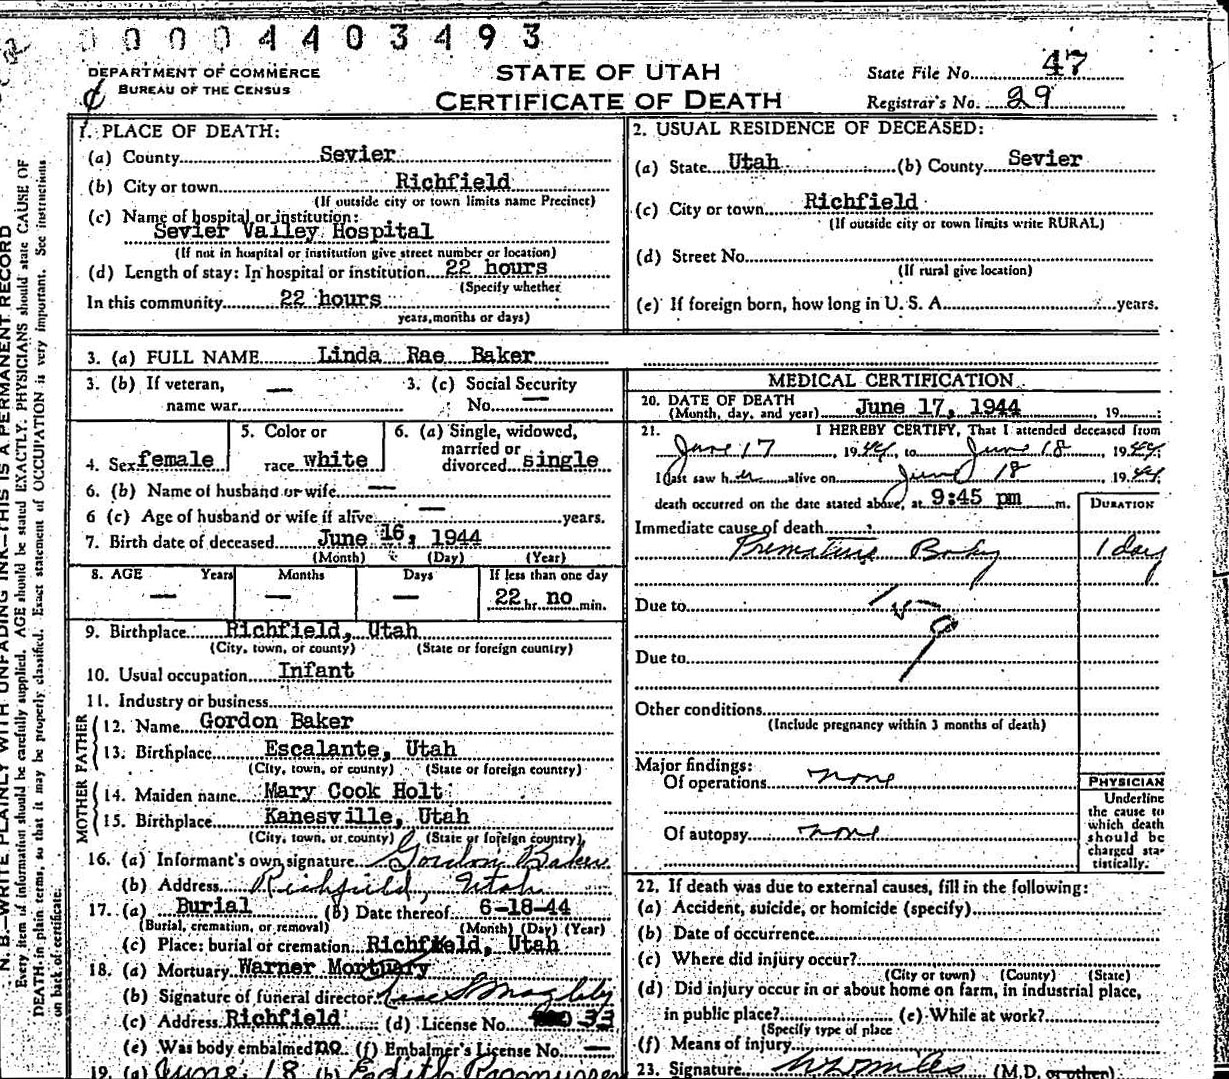 0 0 0 0 4 4 0 3 4 9 3
DEPARTMENT OF COMMERCE
BUREAU OF THE CENSUS
STATE OF UTAH
CERTIFICATE OF DEATH
State File No. 47
Registrar's No. 29
1. PLACE OF DEATH:
(a) County Sevier
(b) City or town Richfield
(If outside city or town limits name Precinct)
(c) Name of hospital or institution:
Sevier Valley Hospital
(If not in hospital or institution give street number or location)
(d) Length of stay: In hospital or institution 22 hours
(Specify whether
In this community 22 hours
years, months or days)
2. USUAL RESIDENCE OF DECEASED:
(a) State Utah (b) County Sevier
(c) City or town Richfield
(If outside city or town limits write RURAL)
(d) Street No.
(If rural give location)
(e) If foreign born, how long in U. S. A. years.
3. (a) FULL NAME Linda Rae Baker
3. (b) If veteran, name war — 3. (c) Social Security No. —
4. Sex female
5. Color or race white
6. (a) Single, widowed, married or divorced single
6. (b) Name of husband or wife —
6 (c) Age of husband or wife if alive — years.
7. Birth date of deceased June 16, 1944
(Month) (Day) (Year)
8. AGE Years Months Days If less than one day
— — — 22 hr. no min.
9. Birthplace Richfield, Utah
(City, town, or county) (State or foreign country)
10. Usual occupation Infant
11. Industry or business
FATHER
12. Name Gordon Baker
13. Birthplace Escalante, Utah
(City, town, or county) (State or foreign country)
MOTHER
14. Maiden name Mary Cook Holt
15. Birthplace Kanesville, Utah
(City, town, or county) (State or foreign country)
16. (a) Informant's own signature Gordon Baker
(b) Address Richfield, Utah
17. (a) Burial (b) Date thereof 6-18-44
(Burial, cremation, or removal) (Month) (Day) (Year)
(c) Place: burial or cremation Richfield, Utah
18. (a) Mortuary Warner Mortuary
(b) Signature of funeral director
(c) Address Richfield (d) License No. 33
(e) Was body embalmed no (f) Embalmer's License No. —
19. (a) June 18 (b) Edith Rasmussen
MEDICAL CERTIFICATION
20. DATE OF DEATH
(Month, day, and year) June 17, 1944 19
21. I HEREBY CERTIFY, That I attended deceased from
June 17, 1944, to June 18, 1944
I last saw her alive on June 18, 1944
death occurred on the date stated above, at 9:45 pm m.
DURATION
Immediate cause of death
Premature Baby 1 day
Due to 159
Due to
Other conditions
(Include pregnancy within 3 months of death)
Major findings:
Of operations none
Of autopsy none
PHYSICIAN
Underline
the cause to
which death
should be
charged sta-
tistically.
22. If death was due to external causes, fill in the following:
(a) Accident, suicide, or homicide (specify)
(b) Date of occurrence
(c) Where did injury occur?
(City or town) (County) (State)
(d) Did injury occur in or about home on farm, in industrial place,
in public place? (e) While at work?
(Specify type of place
(f) Means of injury
23. Signature (M.D. or other)
N. B.—WRITE PLAINLY WITH UNFADING INK—THIS IS A PERMANENT RECORD
Every item of information should be carefully supplied. AGE should be stated EXACTLY. PHYSICIANS should state CAUSE OF
DEATH in plain terms, so that it may be properly classified. Exact statement of OCCUPATION is very important. See instructions
on back of certificate.